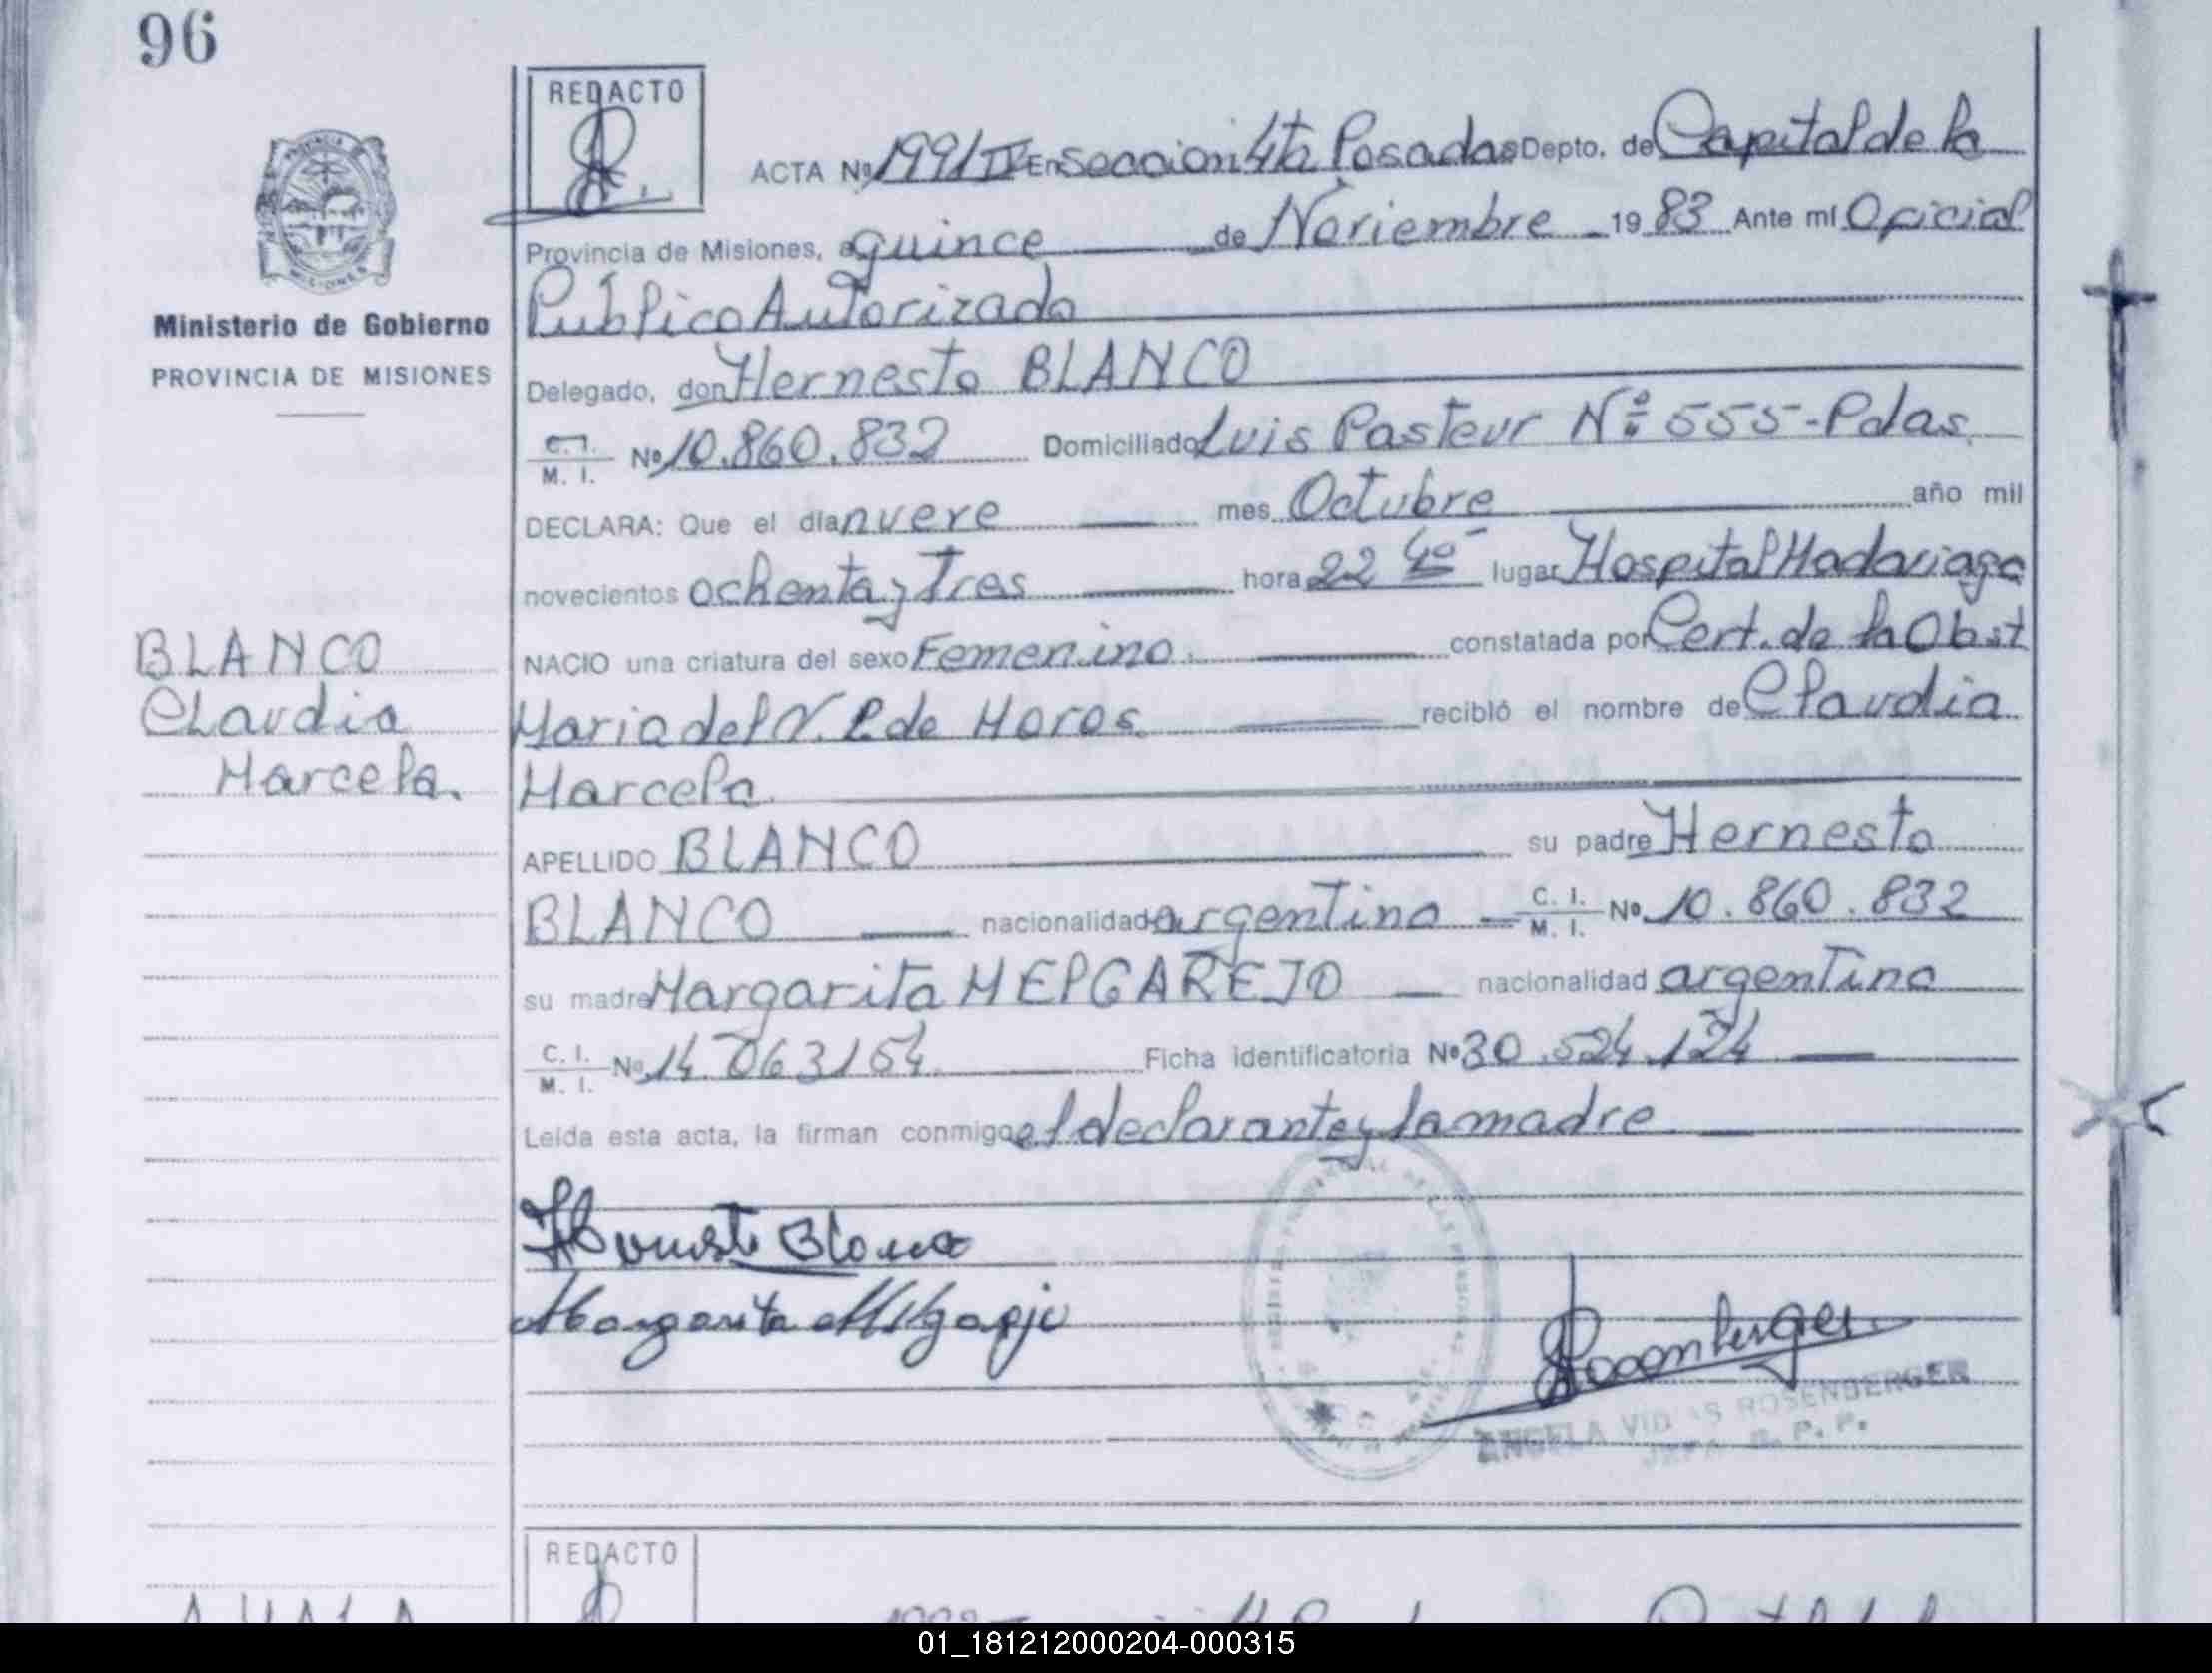 96
REDACTO
ACTA Nº 1991 IV En Seccion 4ta Posadas Depto. de Capital de la
Provincia de Misiones, a quince de Noviembre 19 83 Ante mí Oficial
Público Autorizado
Ministerio de Gobierno
PROVINCIA DE MISIONES
Delegado, don Hernesto BLANCO
C.I. M. I. Nº 10.860.832 Domiciliado Luis Pasteur Nº 555-Pdas.
DECLARA: Que el día nueve mes Octubre año mil
novecientos ochenta y Tres hora 22 40 lugar Hospital Madariaga
NACIO una criatura del sexo Femenino. constatada por Cert. de la Obst
BLANCO
Claudia
Marcela.
Maria del N. P. de Moros. recibió el nombre de Claudia
Marcela.
APELLIDO BLANCO su padre Hernesto
BLANCO nacionalidad argentino C. I. M. I. Nº 10.860.832
su madre Margarita MELGAREJO nacionalidad argentina
C. I. M. I. Nº 14.063154. Ficha identificatoria Nº 30.524.124
Leída esta acta, la firman conmigo el declarante y la madre
Hernesto Blanco
Margarita Melgarejo
Rosenberger
ANGELA VIDAS ROSENBERGER
JEFA R. P. P.
REDACTO
01_181212000204-000315